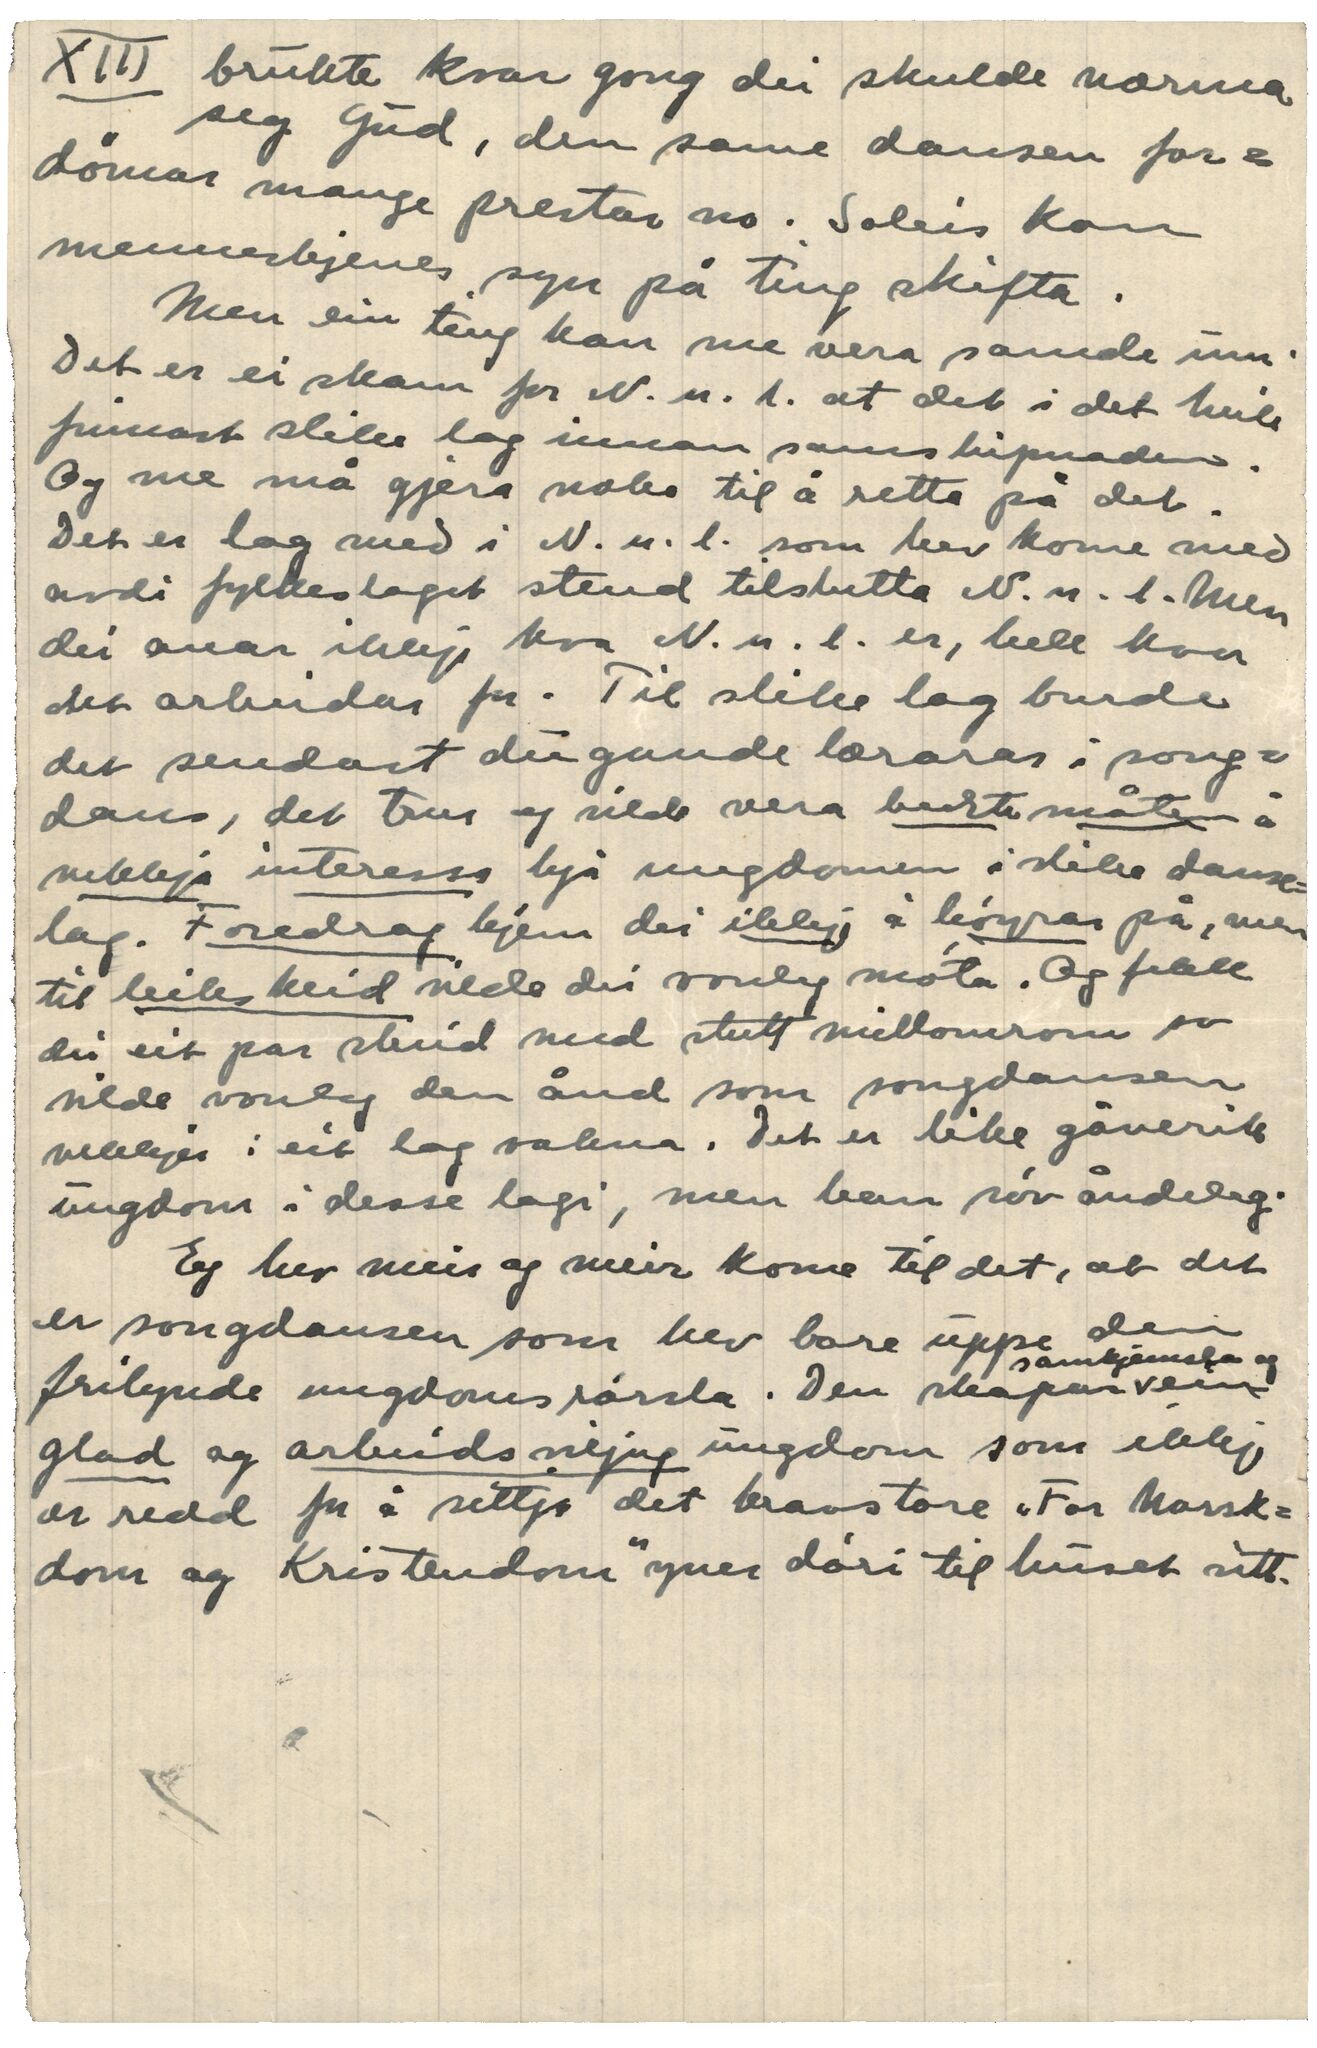 XIII brukte kvar gong dei skulde nærma
seg Gud, den same dansen for=
dömar mange prestar no. Soleis kan
menneskjenes syn på ting skifta.
Men ein ting kan me vera samde um.
Det er ei skam for N. u. l. at det i det heile
finnast slike lag innan samskipnaden.
Og me må gjera noko til å retta på det.
Det er lag med i N. u. l. som hev kome med
avdi fylkeslaget stend tilslutta N. u. l. Men
dei anar ikkje kva N. u. l. er, hell kva
det arbeidar for. Til slike lag burde
det sendast dugande lærarar i song=
dans, det trur eg vilde vera beste måten å
vekkja interessa hjå ungdomen i slike danse=
lag. Foredrag kjem dei ikkje å höyrar på, men
til leikskeid vilde dei vonleg möta. Og fekk
dei eit par skeid med stutt millomrom so
vilde vonleg den ånd som songdansen
vekkjer i eit lag vakna. Det er like gåverik
ungdom i desse lagi, men han söv åndeleg.
Eg hev meir og meir kome til det, at det
er songdansen som hev bore uppe den
frilynde ungdomsrörsla. Den skapar samkjensla og ein
glad og arbeidsviljug ungdom som ikkje
er redd for å setja det kravstore „For Norsk=
dom og Kristendom" yver döri til huset sitt.